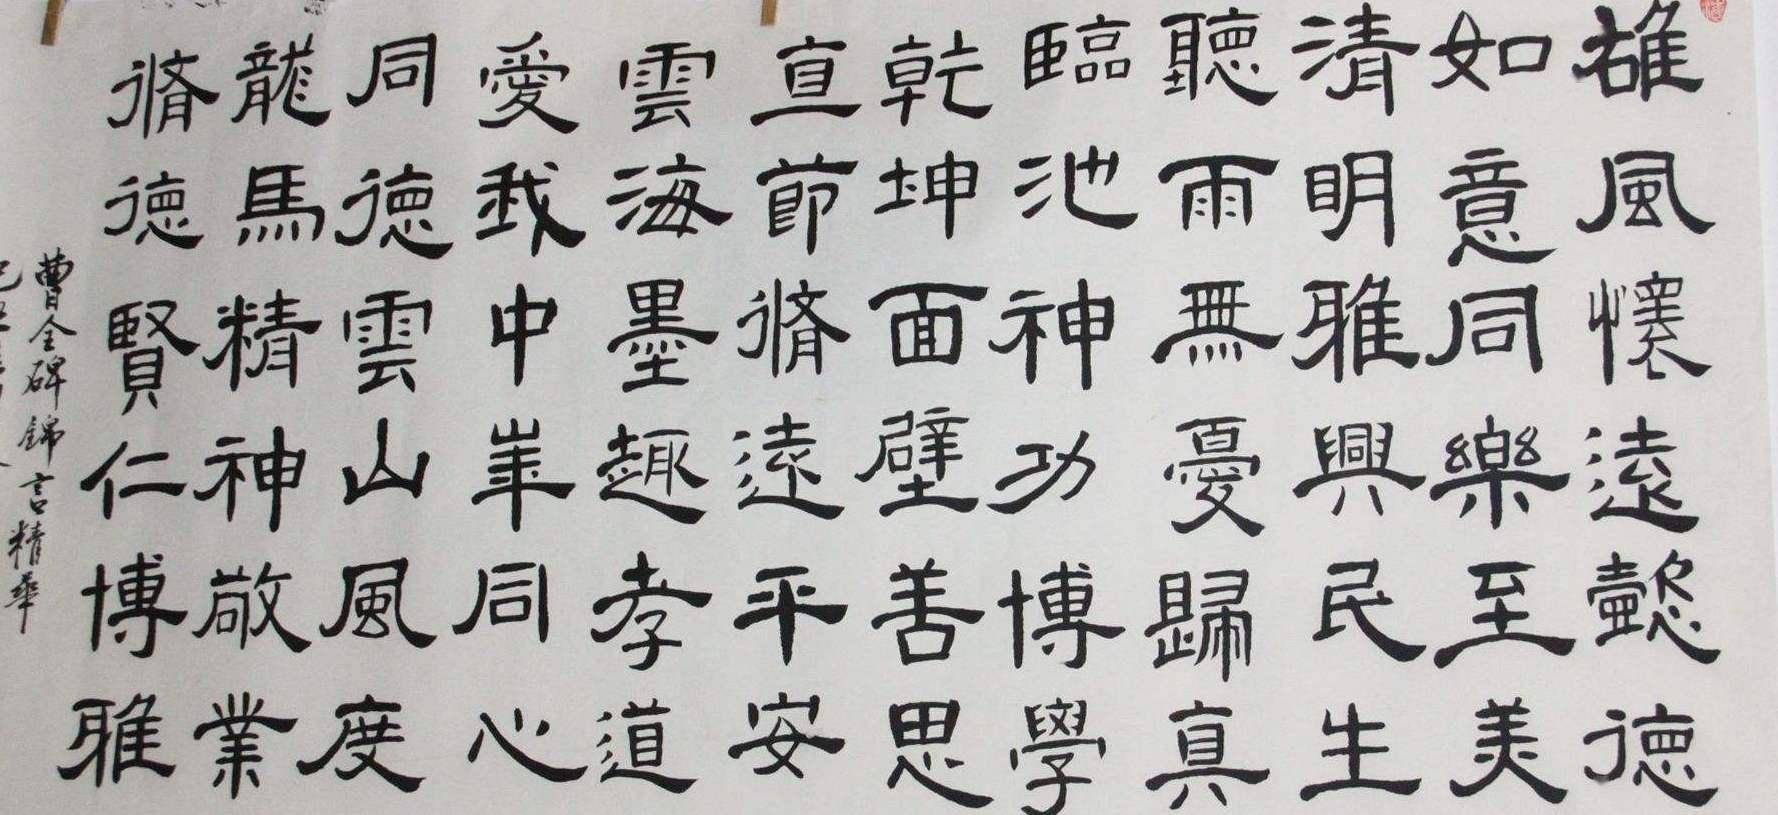 雄風懷遠懿德
如意同樂至美
清明雅興民生
聽雨無憂歸真
臨池神功博學
乾坤面壁善思
直節脩遠平安
雲海墨趣孝道
愛我中華同心
同德雲山風度
龍馬精神敬業
脩德賢仁博雅
曹全碑錦言精華